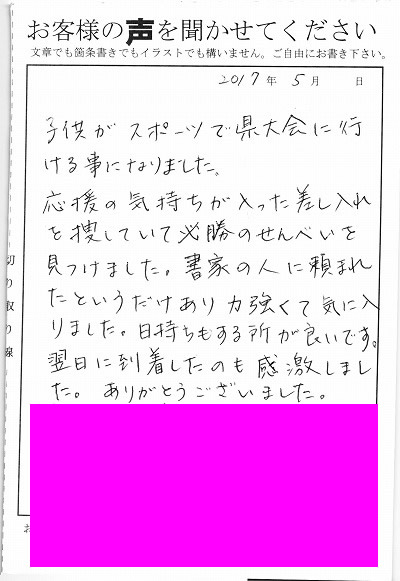 お客様の声を聞かせてください
文章でも箇条書きでもイラストでも構いません。ご自由にお書き下さい。
2017年 5月 日
子供がスポーツで県大会に行
ける事になりました。
応援の気持ちが入った差し入れ
を捜していて必勝のせんべいを
見つけました。書家の人に頼まれ
たというだけあり力強くて気に入
りました。日持ちもする所が良いです。
翌日に到着したのも感激しまし
た。ありがとうございました。
切り取り線
お